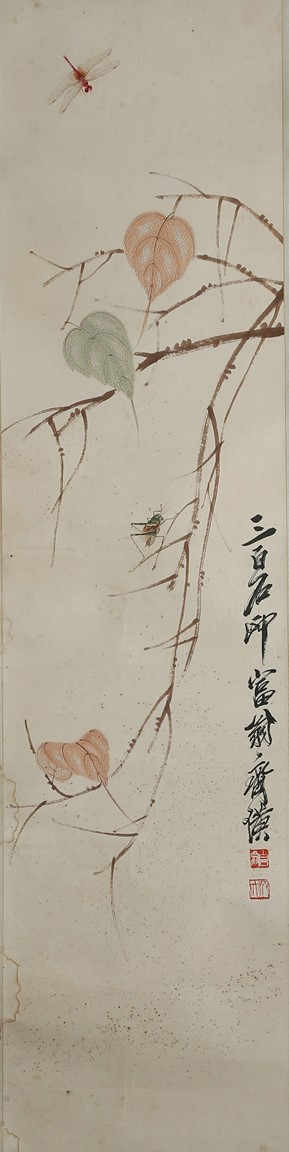 三百石印富翁齊璜